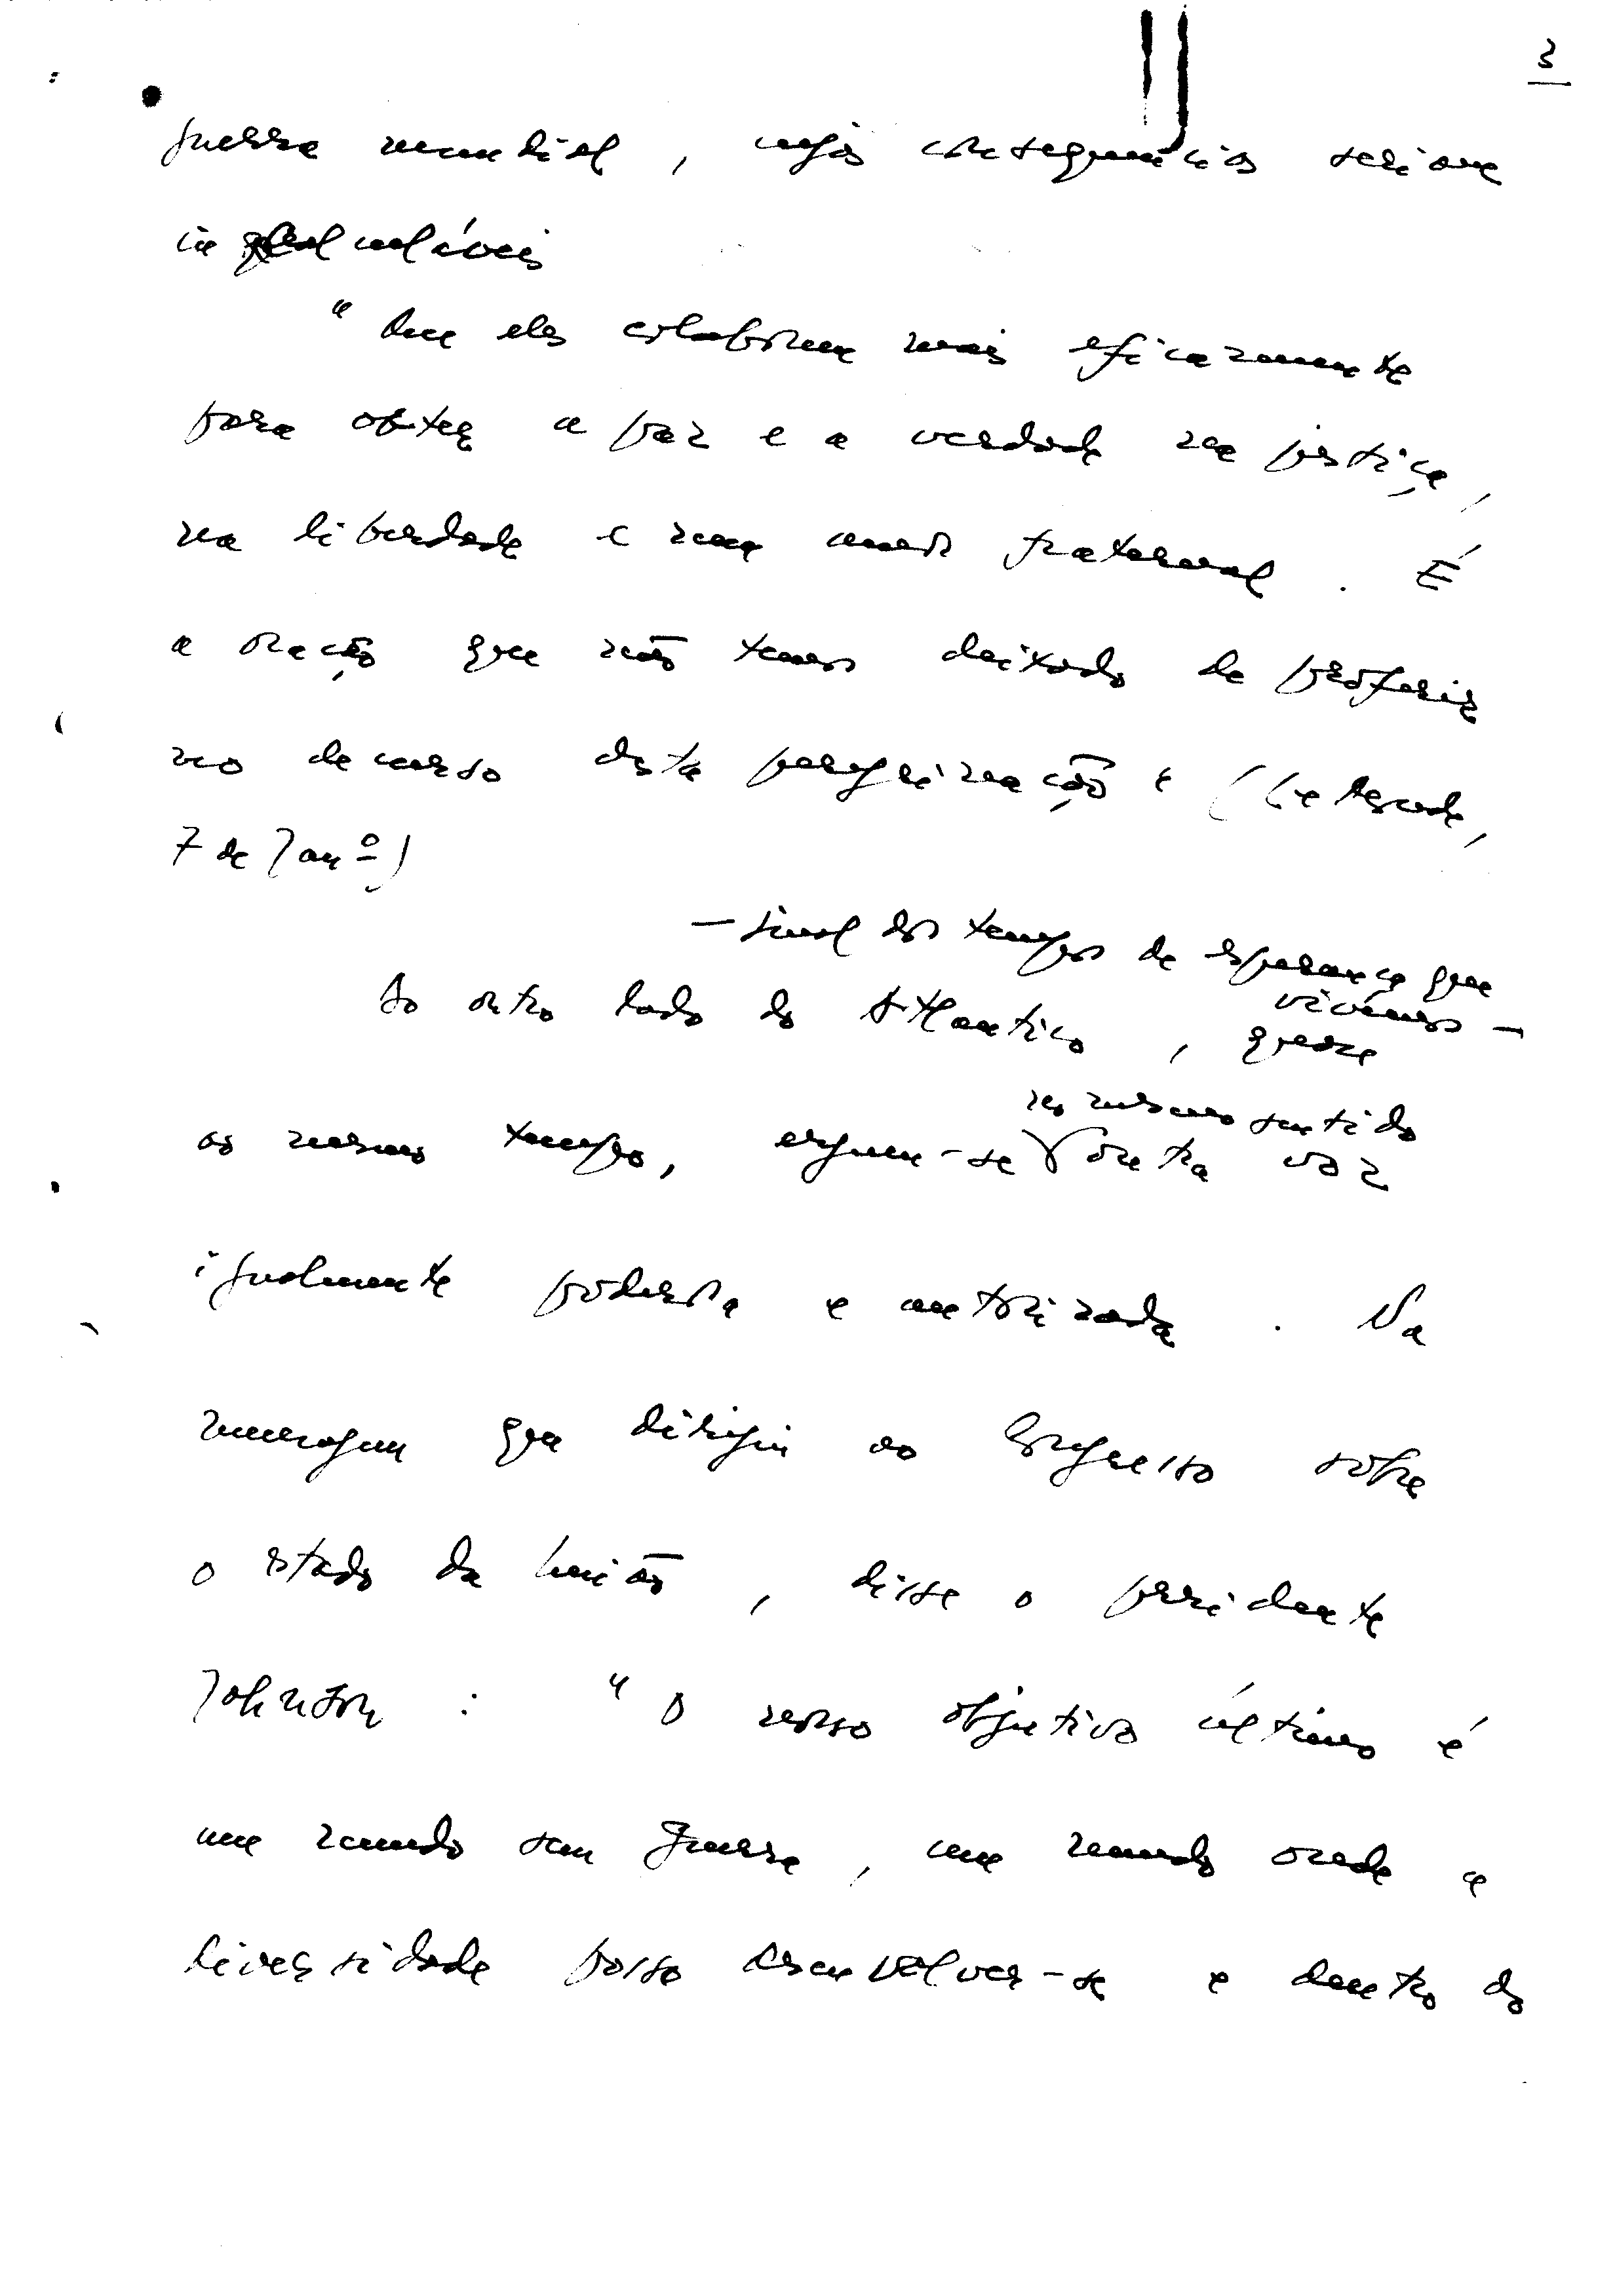 3
guerra mundial, cujas consequências seriam
incalculáveis
"Que eles colaborem mais eficazmente
para obter a paz e a verdade na justiça,
na liberdade e num amor fraternal. É
a oração que não temos deixado de proferir
no decurso desta peregrinação" (
7 de Janº)
— sinal dos tempos de esperança que
vivemos —
Ao outro lado do Atlantico, quase
no mesmo sentido
ao mesmo tempo, ergueu-se outra voz
igualmente poderosa e autorizada. Na
mensagem que dirigiu ao Congresso sobre
o estado da União, disse o presidente
Johnson: "O nosso objetivo último é
um mundo sem guerra, um mundo onde a
diversidade possa desenvolver-se e dentro do